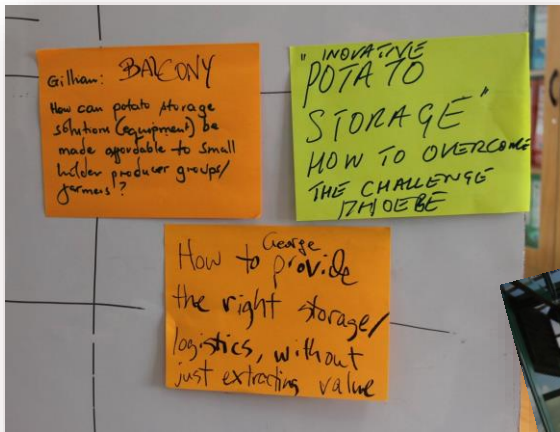 Gilham: BALCONY
How can potato storage
solutions (equipment) be
made affordable to small
holder producer groups/
farmers?
"INOVATIVE
POTATO
STORAGE"
HOW TO OVERCOME
THE CHALLENGE
PHOEBE
George
How to provide
the right storage/
logistics, without
just extracting value